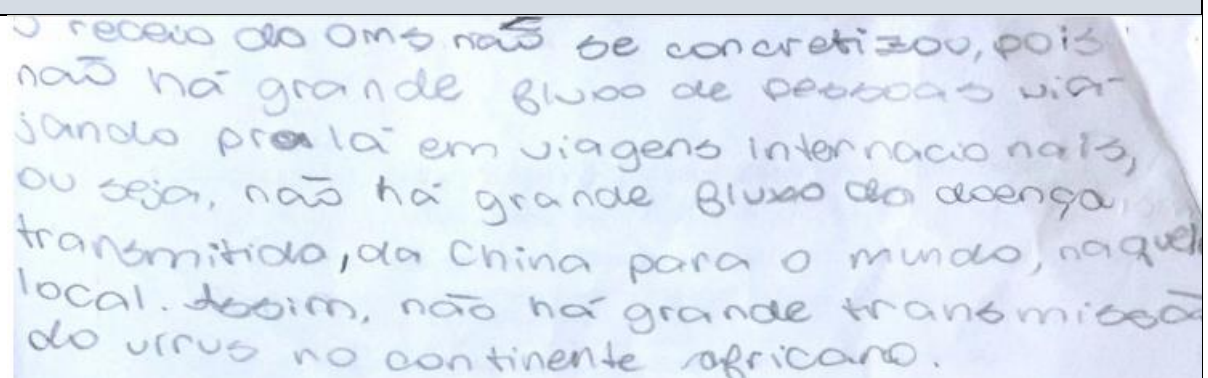 O receio da OMS não se concretizou, pois
não há grande fluxo de pessoas via-
jando pra lá em viagens internacionais,
ou seja, não há grande fluxo da doença
transmitida, da China para o mundo, naquele
local. Assim, não há grande transmissão
do vírus no continente africano.